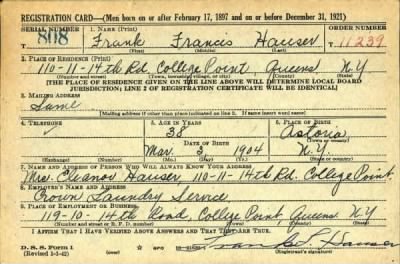 REGISTRATION CARD—(Men born on or after February 17, 1897 and on or before December 31, 1921)
SERIAL NUMBER 1. NAME (Print) ORDER NUMBER
808 Frank Francis Hauser T 11239
(First) (Middle) (Last)
2. PLACE OF RESIDENCE (Print)
110-11-14th Rd. College Point Queens N.Y
(Number and street) (Town, township, village, or city) (County) (State)
[THE PLACE OF RESIDENCE GIVEN ON THE LINE ABOVE WILL DETERMINE LOCAL BOARD
JURISDICTION; LINE 2 OF REGISTRATION CERTIFICATE WILL BE IDENTICAL]
3. MAILING ADDRESS
Same
[Mailing address if other than place indicated on line 2. If same insert word same]
4. TELEPHONE 5. AGE IN YEARS 6. PLACE OF BIRTH
38 Astoria
DATE OF BIRTH (Town or county)
Mar. 3 1904 N.Y
(Exchange) (Number) (Mo.) (Day) (Yr.) (State or country)
7. NAME AND ADDRESS OF PERSON WHO WILL ALWAYS KNOW YOUR ADDRESS
Mrs. Eleanor Hauser, 110-11-14th Rd. College Point
8. EMPLOYER'S NAME AND ADDRESS
Crown Laundry Service
9. PLACE OF EMPLOYMENT OR BUSINESS
119-10-14th Road, College Point Queens N.Y
(Number and street or R. F. D. number) (Town) (County) (State)
I AFFIRM THAT I HAVE VERIFIED ABOVE ANSWERS AND THAT THEY ARE TRUE.
D. S. S. Form 1
(Revised 1-1-42) (over) Hauser
(Registrant's signature)